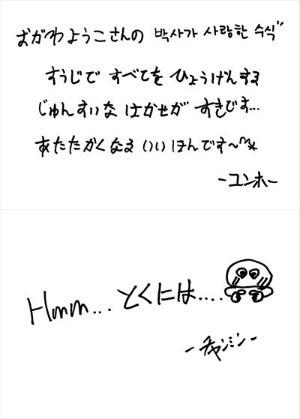 おがわようこさんの 박사가 사랑한 수식"
すうじで すべてを ひょうげんする
じゅんすいな はかせが すきです...
あたたかくなる いい ほんです～^^*
－ユンホ－
Hmm... とくには....
－チャンミン－